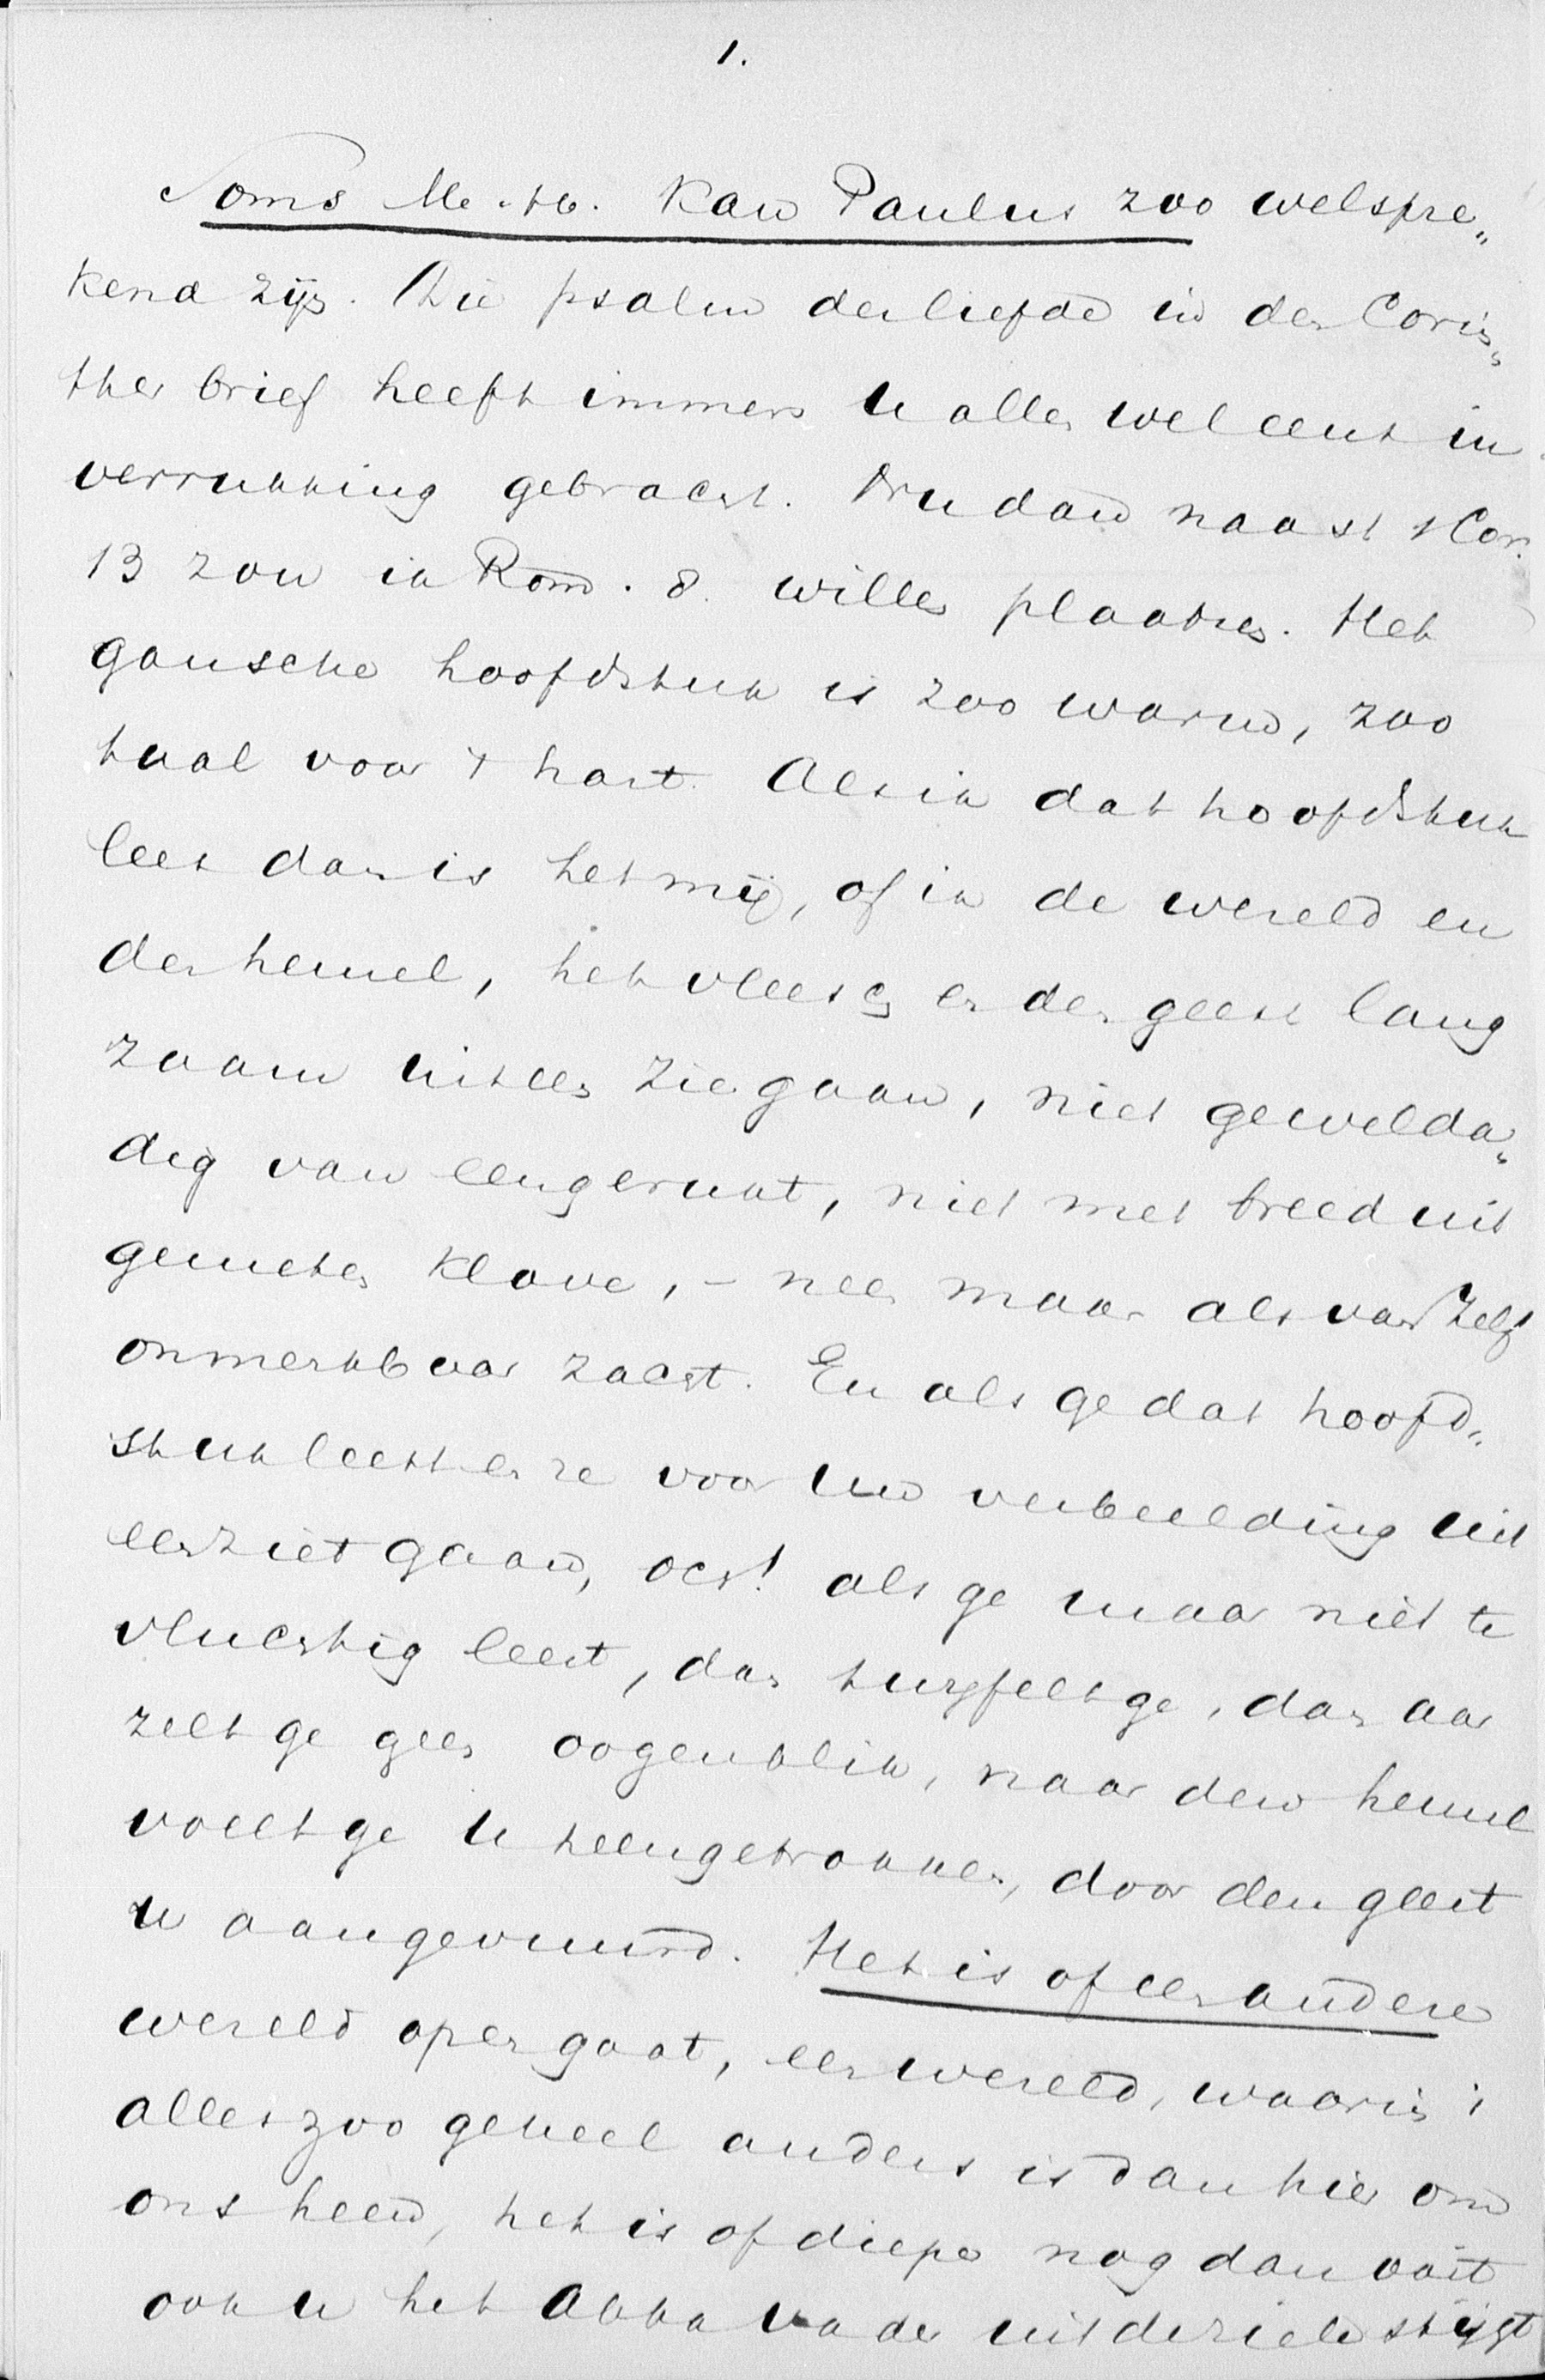 1.
Soms M. H. kan Paulus zoo welspre„
kend zijn. Die psalm der liefde in den Corin„
ther brief heeft immers U allen wel eens in
verrukking gebracht. Nu dan naast 1 Cor.
13 zou ik Rom. 8. willen plaatsen. Het
gansche hoofdstuk is zoo warm, zoo
taal voor 't hart. Als ik dat hoofdstuk
lees dan is het mij, of ik de wereld en
den hemel, het vleesch en den geest lang
zaam uiteen zie gaan, niet gewelda„
dig van eengerukt, niet met breed uit
gemeten klove, – neen maar als van zelf
onmerkbaar zacht. En als ge dat hoofd„
stuk leest en ze voor uw verbeelding uit
een ziet gaan, och! als ge maar niet te
vluchtig leest, dan twijfelt ge, dan aar
zelt ge geen oogenblik, naar den hemel
voelt ge U heengetrokken, door den geest
U aangevuurd. Het is of een andere
wereld open gaat, een wereld, waarin
alles zoo geheel anders is dan hier om
ons heen, het is of dieper nog dan ooit
ook u het Abba Vader uit de ziele stijgt